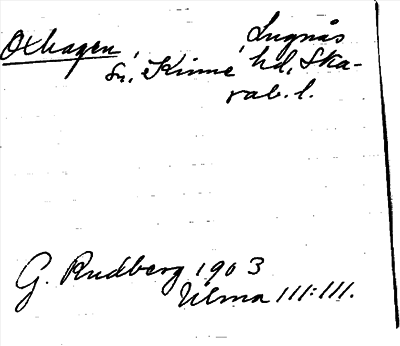 Oxhagen, Lugnås
sn, Kinne hd, Ska-
rab. l.
G. Rudberg 1903
Vilma III:III.